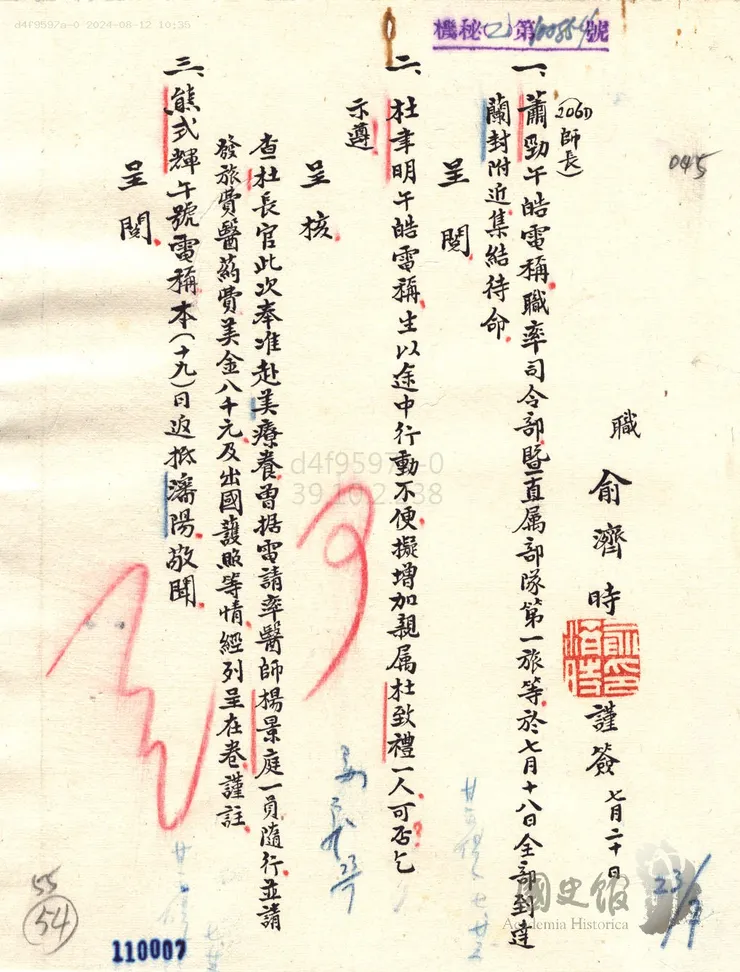 d4f9597a-0 2024-08-12 10:35
機秘(乙)第 號
045
職 俞濟時 謹簽 七月二十日
俞濟時印
(206D師長)
一、蕭勁午皓電稱職率司令部暨直属部隊第一旅等於七月十八日全部到達
蘭封附近集結待命
呈閱
二、杜聿明午皓電稱生以途中行動不便擬增加親属杜致禮一人可否乞
示遵
呈核
查杜長官此次奉准赴美療養曾据電請率醫師楊景庭一員隨行並請
發旅費醫药費美金八千元及出國護照等情經列呈在卷謹註
三、熊式輝午號電稱本(十九)日返抵瀋陽敬聞
呈閱
23/7
55
54
110007
國史館
Academia Historica